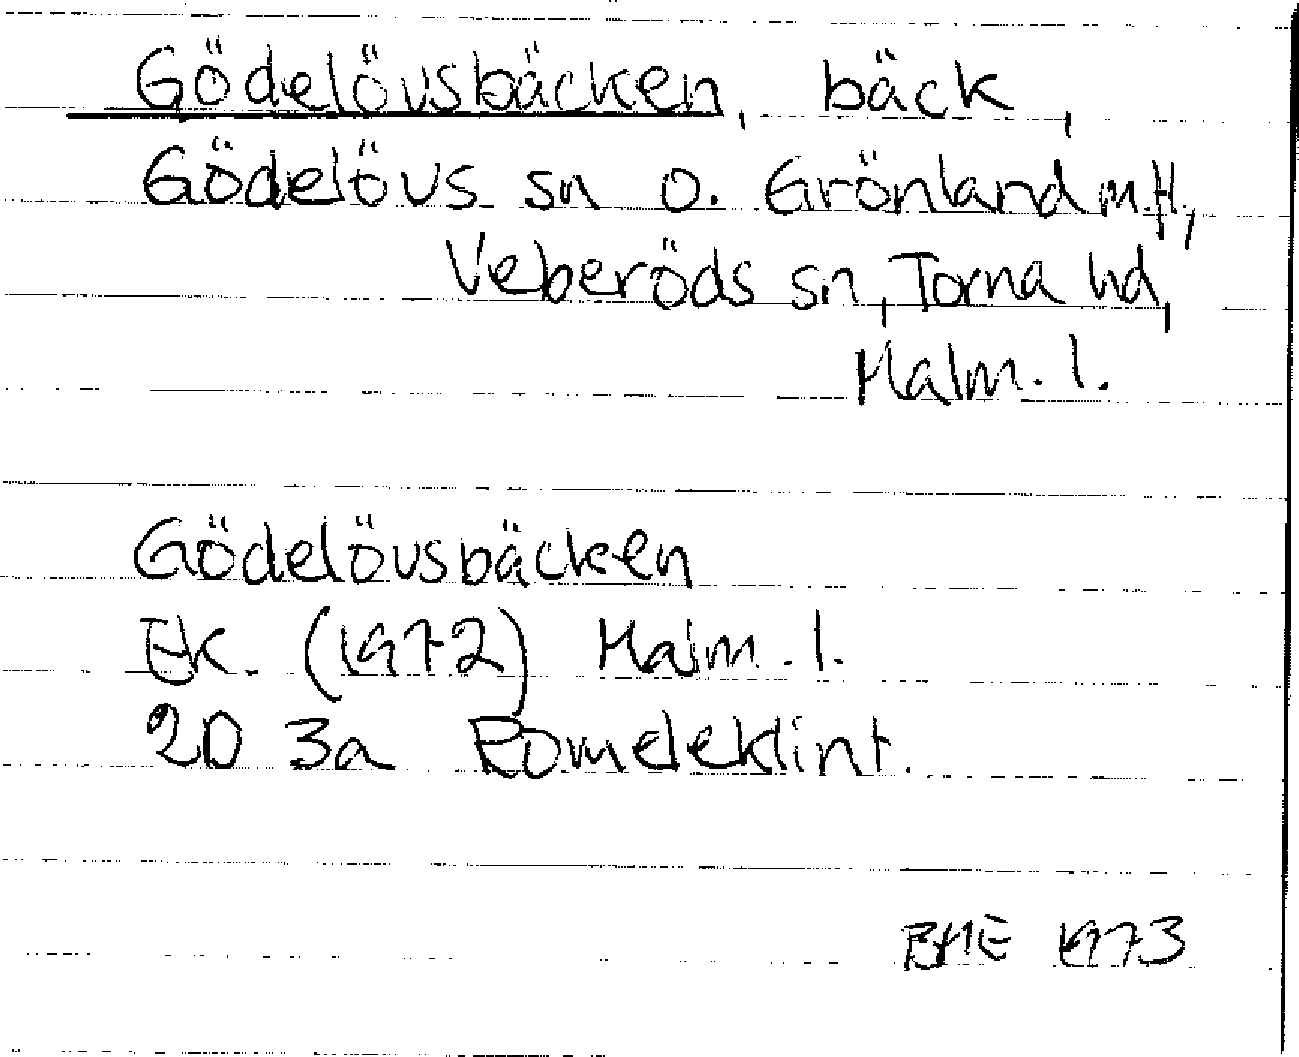 Gödelövsbäcken, bäck,
Gödelövs sn o. Grönland m.fl.,
Veberöds sn, Torna hd,
Malm. l.
Gödelövsbäcken
Ek. (1972) Malm. l.
2D 3a Romeleklint.
BME 1973